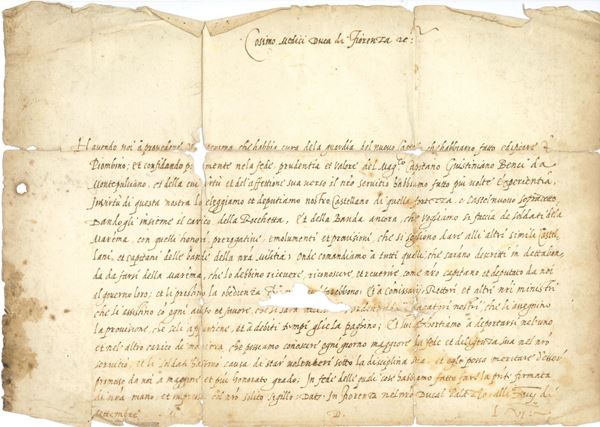 Cosimo Medici Duca di Fiorenza &c:
Havendo noi à provedere persona che habbia cura dela guardia del nuovo che habbiamo fatto edificare
Piombino; et confidando nela fede, prudentia et valore del Mag.co Capitano Giustiniano Benci da
Montepulciano, et della cui virtù et del affettione sua verso il nro servitio habbiamo fatto più volte Experientia,
In virtù di questa nostra lo eleggiamo et deputiamo nostro Castellano di quella fortezza, o Castelnuovo sopradetto
Dandogli insieme il carico della Rocchetta, Et della Banda ancora, che vogliamo si faccia de soldati dela
Marema, con quelli honori, prerogative, emolumenti et provisioni, che si sogliono dare alli altri simili Castel
lani, et capitani delle bande della nra Militia; Onde comandiamo a tutti quelli che sarano descritti in detta ban
da da farsi della Marema, che lo debbino ricevere, riconoscere, et reverire, come nro capitano et deputato da noi
al governo loro; et li prestino la obedienza Et a comissarij, Rettori et altri nri ministri
che li assistino co ogni aiuto et favore, nostri, che li assegnino
la provisione, che seli et à debiti tempi gliela paghino; Et lui Exhortiamo à deportarsi nel'uno
et nel'altro carico di maniera che possiamo conoscere ogni giorno maggiore la fede et diligentia sua nel nro
servitio, et li soldati causa di star volentieri sotto la disciplina sua, et eglo possa meritare d'esser
promosso da noi à maggiore et più honorato grado; In fede delle quali cose habbiamo fatto fare la pñte firmata
di nra mano, et impressa del nro solito sigillo. Dato In Fiorenza nel nro Ducal Palazo alli di
settembre D. L VI: